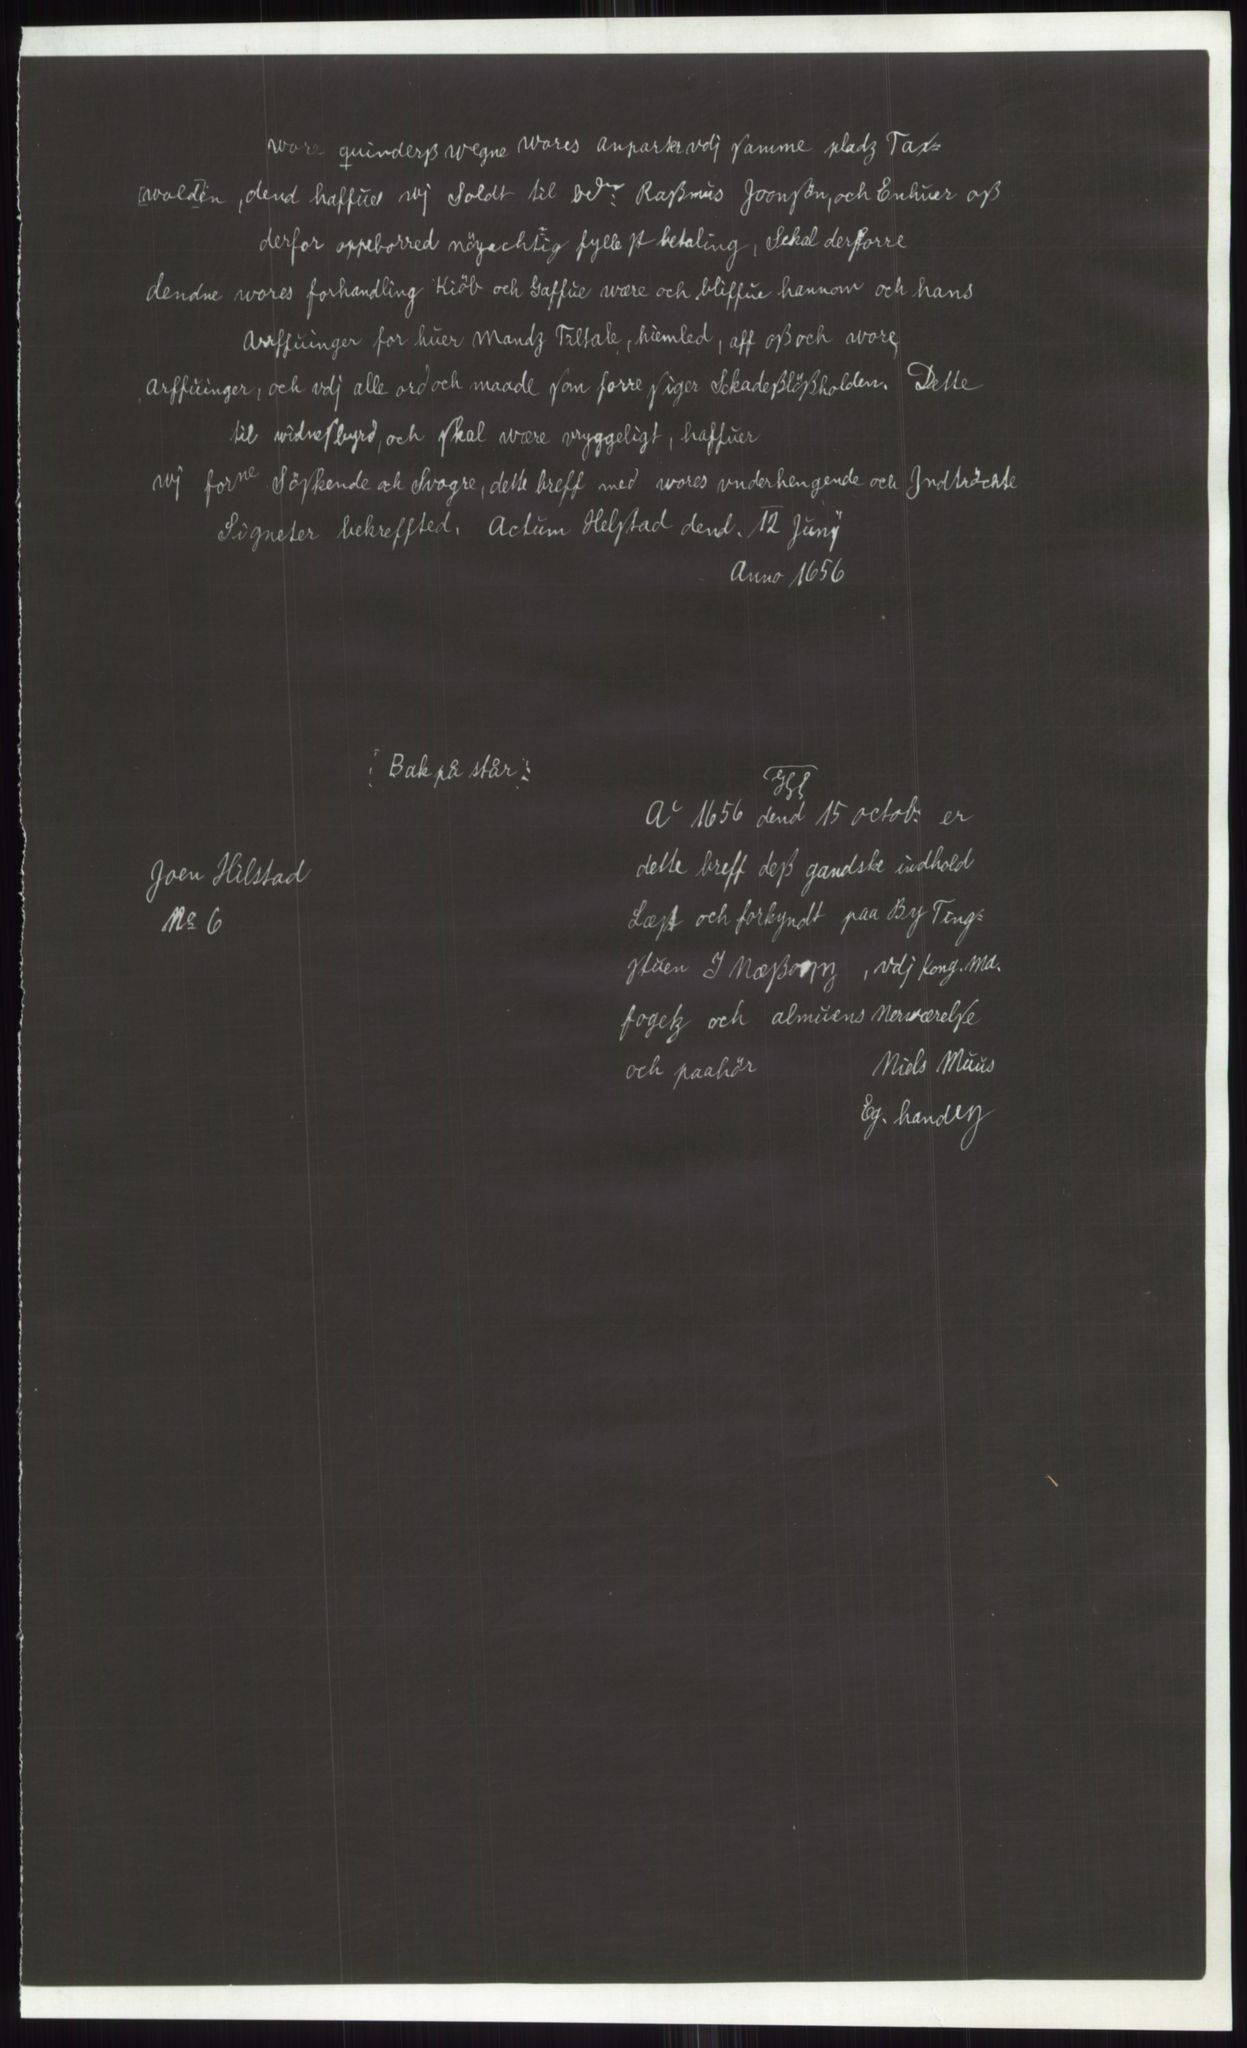 wore quinderß wegne wores anparter vdj samme pladz Tax=
[wold]en, dend haffuer wj Soldt til bedr: Raßmus Joonsön, och Enhuer oß
derfor oppeborred nöyachtig fylle st betaling, Sckal derforre
dendne wores forhandling Kiöb och Gaffue wære och bliffue hannom och hans
Arffuinger for huer Mandz Tiltale, hiemled, aff oß och wore
arffuinger, och vdj alle ord och maade som forre siger Sckadeßlößholden. Dette
til widnesbyrd, och skal wære vryggeligt, haffuer
wj forne Söskende och Svogre, dette breff med wores vnderhengende och Jndtröchte
Signeter bekreffted. Actum Helstad dend. 12 Junÿ
Anno 1656
Bak på står:
Ao 1656 dend 15 octob: er
dette breff deß gandske indhold
Læst och forkyndt paa By Ting=
stuen I , vdj Kong. Ma.
fogetz och almuens Nerwærelse
och paahör Niels Muus
Eg. handtz
Joen Hilstad
No 6